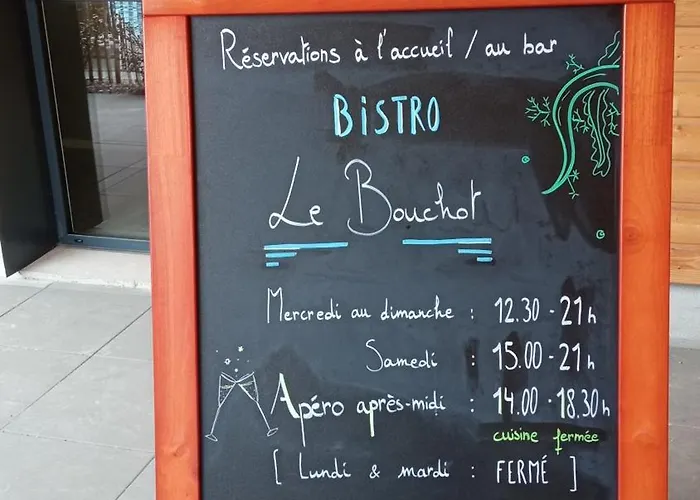 Réservations à l'accueil / au bar
BiSTRO
Le Bouchot
Mercredi au dimanche : 12.30 - 21h
Samedi : 15.00 - 21h
Apéro après-midi : 14.00 - 18.30h
cuisine fermée
[ Lundi & mardi : FERMÉ ]